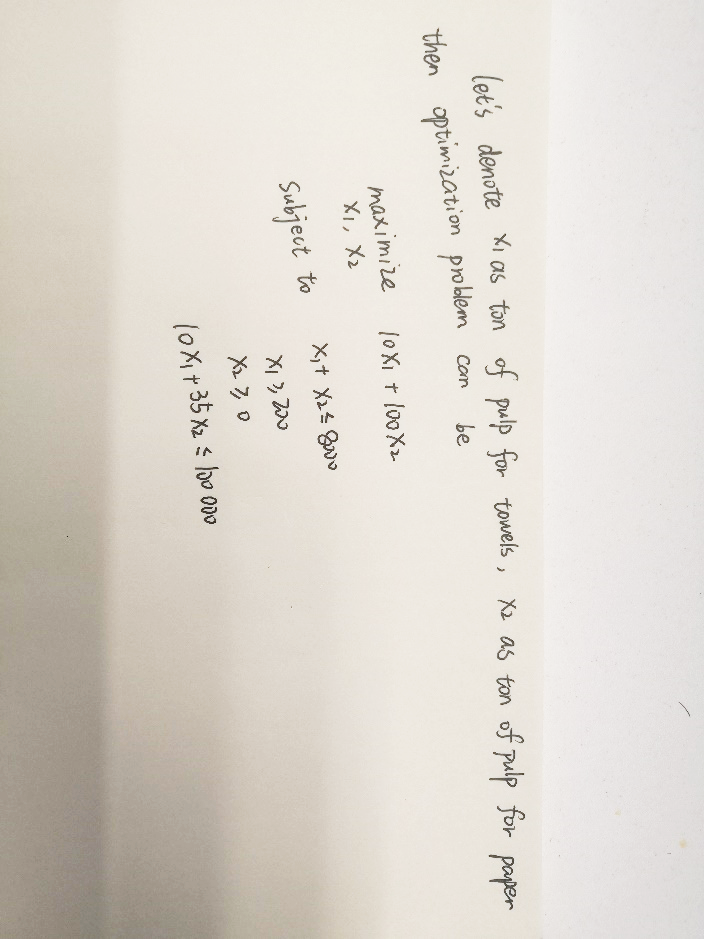 let's denote x₁ as ton of pulp for towels, x₂ as ton of pulp for paper
then optimization problem can be
maximize 10x₁ + 100x₂
x₁, x₂
Subject to x₁ + x₂ ≤ 8000
x₁ ≥ 200
x₂ ≥ 0
10x₁ + 35x₂ ≤ 100 000